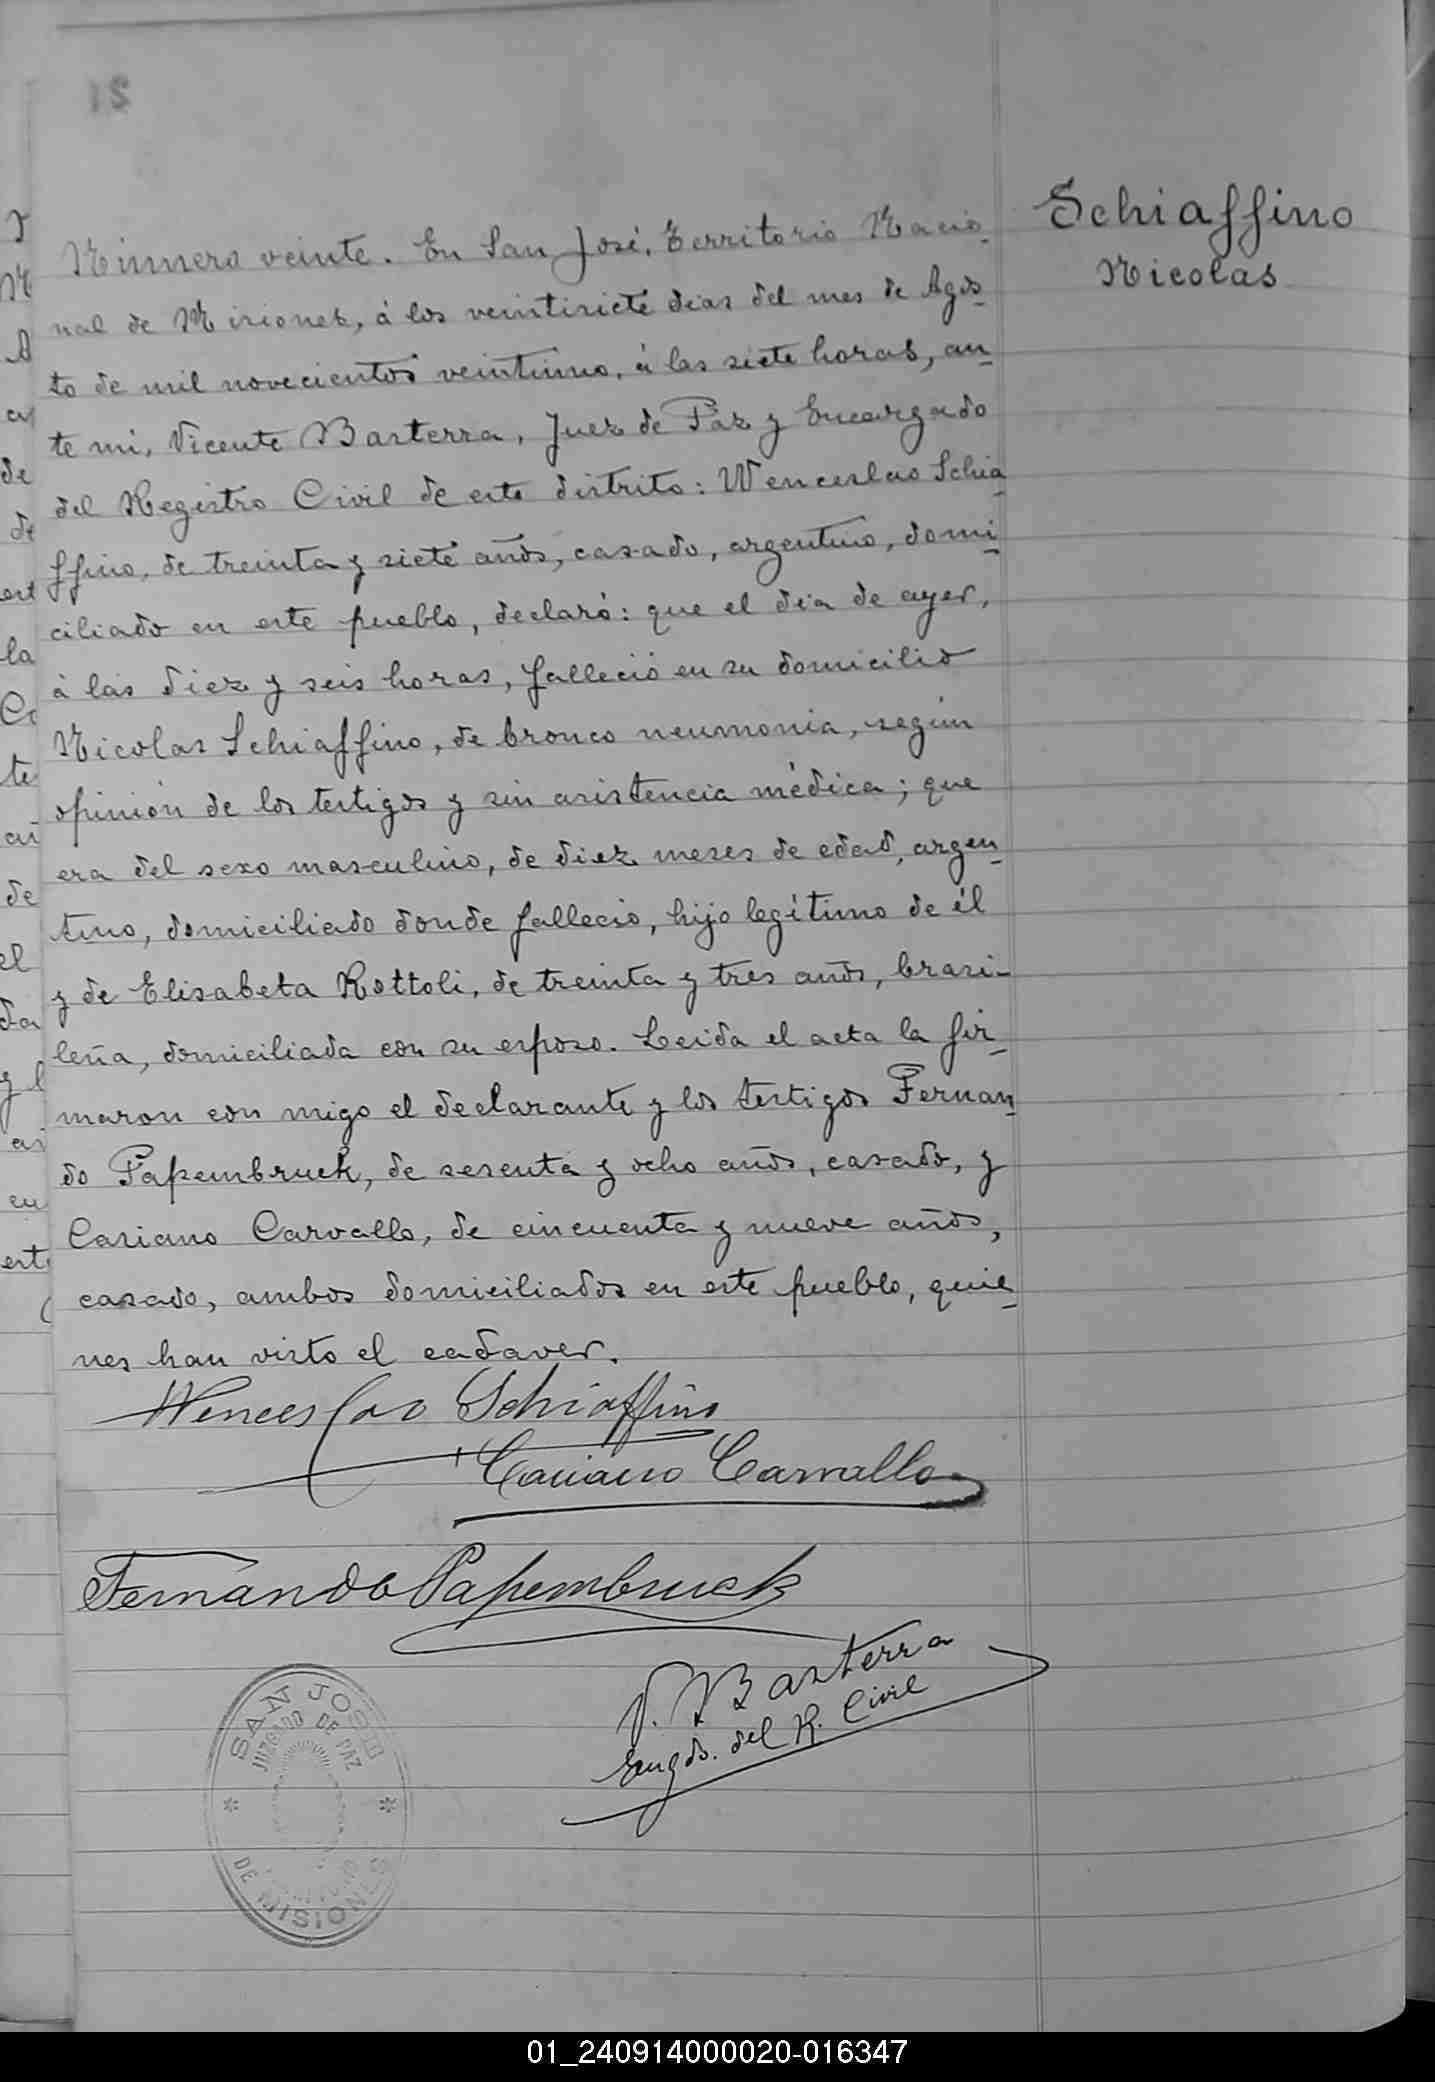 Schiaffino
Nicolas
Número veinte. En San José, Territorio Nacio-
nal de Misiones, á los veintisiete dias del mes de Agos-
to de mil novecientos veintiuno, á las siete horas, an-
te mi, Vicente Basterra, Juez de Paz y Encargado
del Registro Civil de este distrito: Wenceslao Schia-
ffino, de treinta y siete años, casado, argentino, domi-
ciliado en este pueblo, declaró: que el dia de ayer,
á las diez y seis horas, falleció en su domicilio
Nicolas Schiaffino, de bronco neumonia, según
opinión de los testigos y sin asistencia médica; que
era del sexo masculino, de diez meses de edad, argen-
tino, domiciliado donde falleció, hijo legítimo de él
y de Elisabeta Rottoli, de treinta y tres años, brasi-
leña, domiciliada con su esposo. Leida el acta la fir-
maron con migo el declarante y los testigos Fernan-
do Papembruck, de sesenta y ocho años, casado, y
Casiano Carvallo, de cincuenta y nueve años,
casado, ambos domiciliados en este pueblo, quie-
nes han visto el cadaver.
Wenceslao Schiaffino
Casiano Carvallo
Fernando Papembruck
V. Basterra
Engdo. del R. Civil
SAN JOSE
JUZGADO DE PAZ
DE MISIONES
01_240914000020-016347